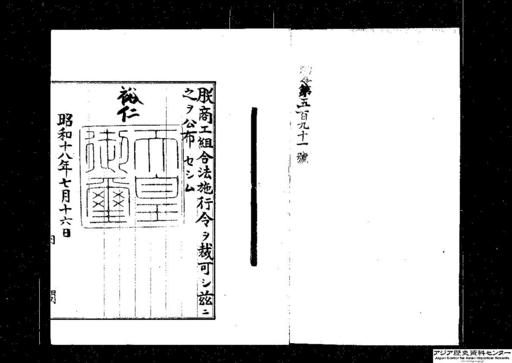 勅令第五百九十一號
朕商工組合法施行令ヲ裁可シ茲ニ
之ヲ公布セシム
裕仁
天皇御璽
昭和十八年七月十六日
内閣
アジア歴史資料センター
Japan Center for Asian Historical Records